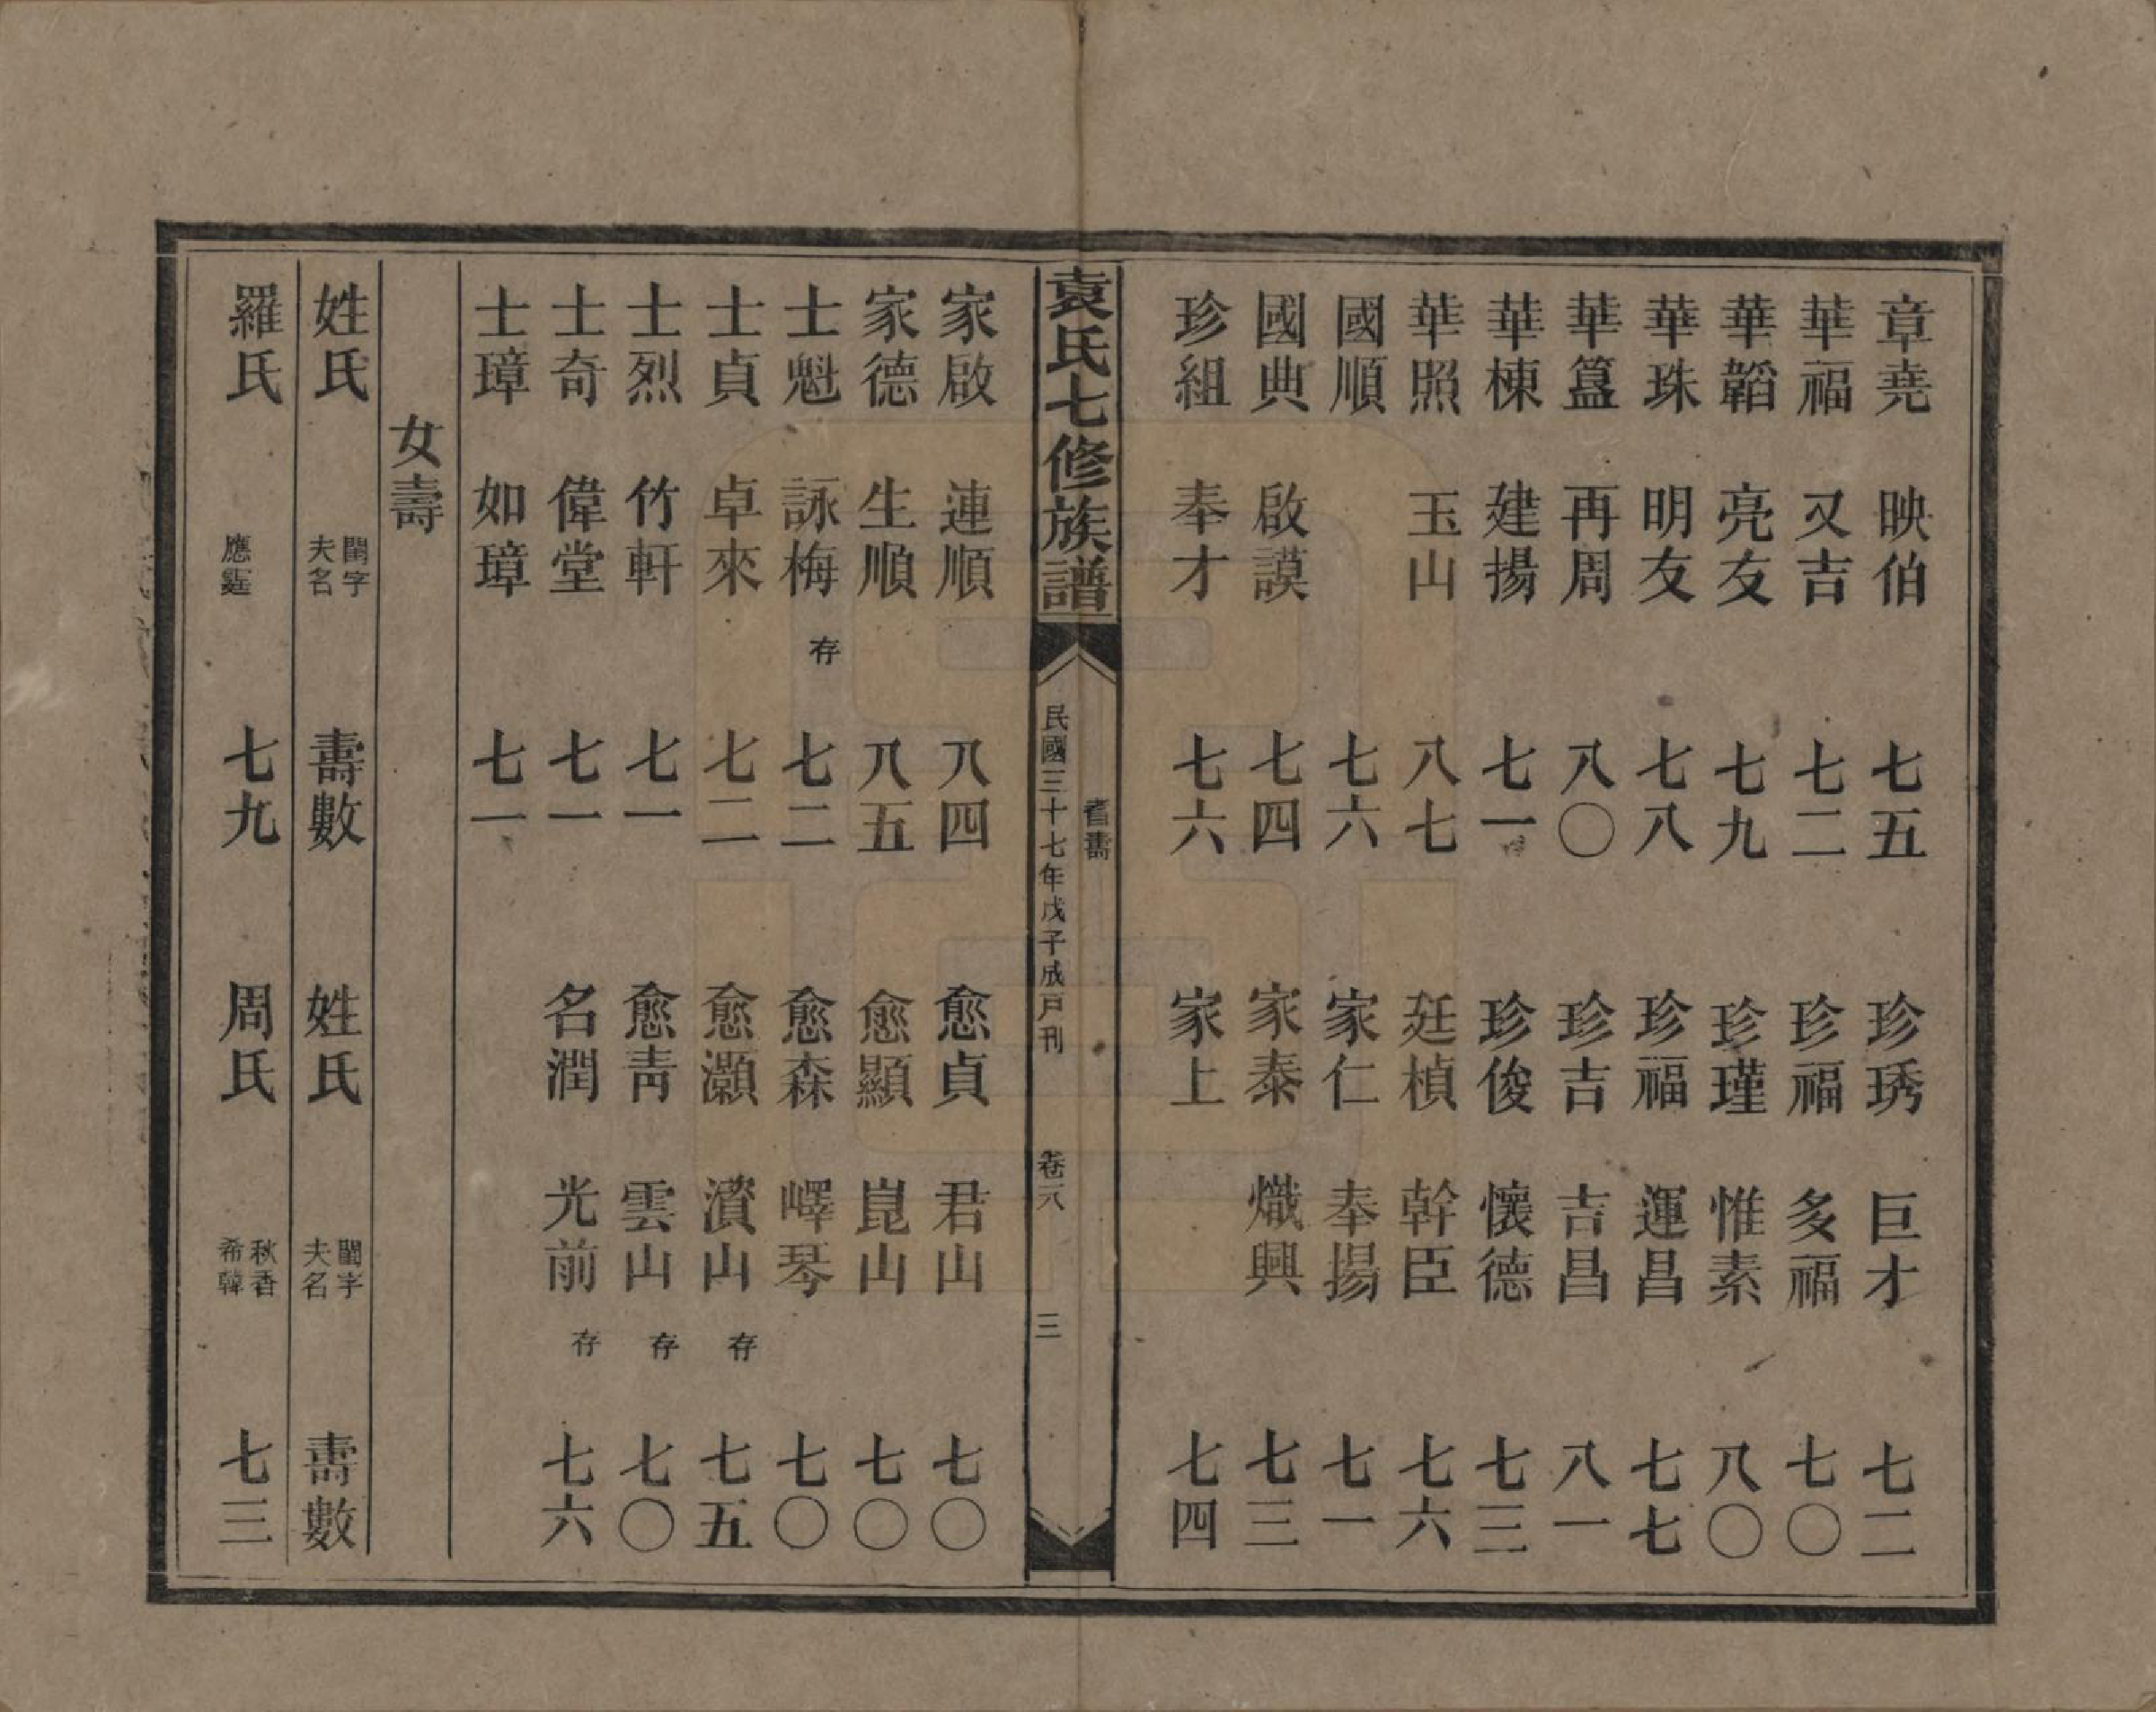 章堯　映伯　七五　珍琇　巨才　七二
華福　又吉　七二　珍福　多福　七〇
華韜　亮友　七九　珍瑾　惟素　八〇
華珠　明友　七八　珍福　運昌　七七
華簋　再周　八〇　珍吉　吉昌　八一
華棟　建揚　七一　珍俊　懷德　七三
華照　玉山　八七　廷楨　幹臣　七六
國順　七六　家仁　奉揚　七一
國典　啟謨　七四　家泰　熾興　七三
珍組　奉才　七六　家上　七四
袁氏七修族譜　耆壽
民國三十七年戊子成戶刊　卷六　三
家啟　連順　八四　愈貞　君山　七〇
家德　生順　八五　愈顯　崑山　七〇
士魁　詠梅　存　七二　愈森　嶧琴　七〇
士貞　卓來　七二　愈灝　濱山　存　七五
士烈　竹軒　七一　愈青　雲山　存　七〇
士奇　偉堂　七一　名潤　光前　存　七六
士璋　如璋　七一
女壽
姓氏　閨字　夫名　壽數　姓氏　閨字　夫名　壽數
羅氏　應霆　七九　周氏　秋香　希韓　七三